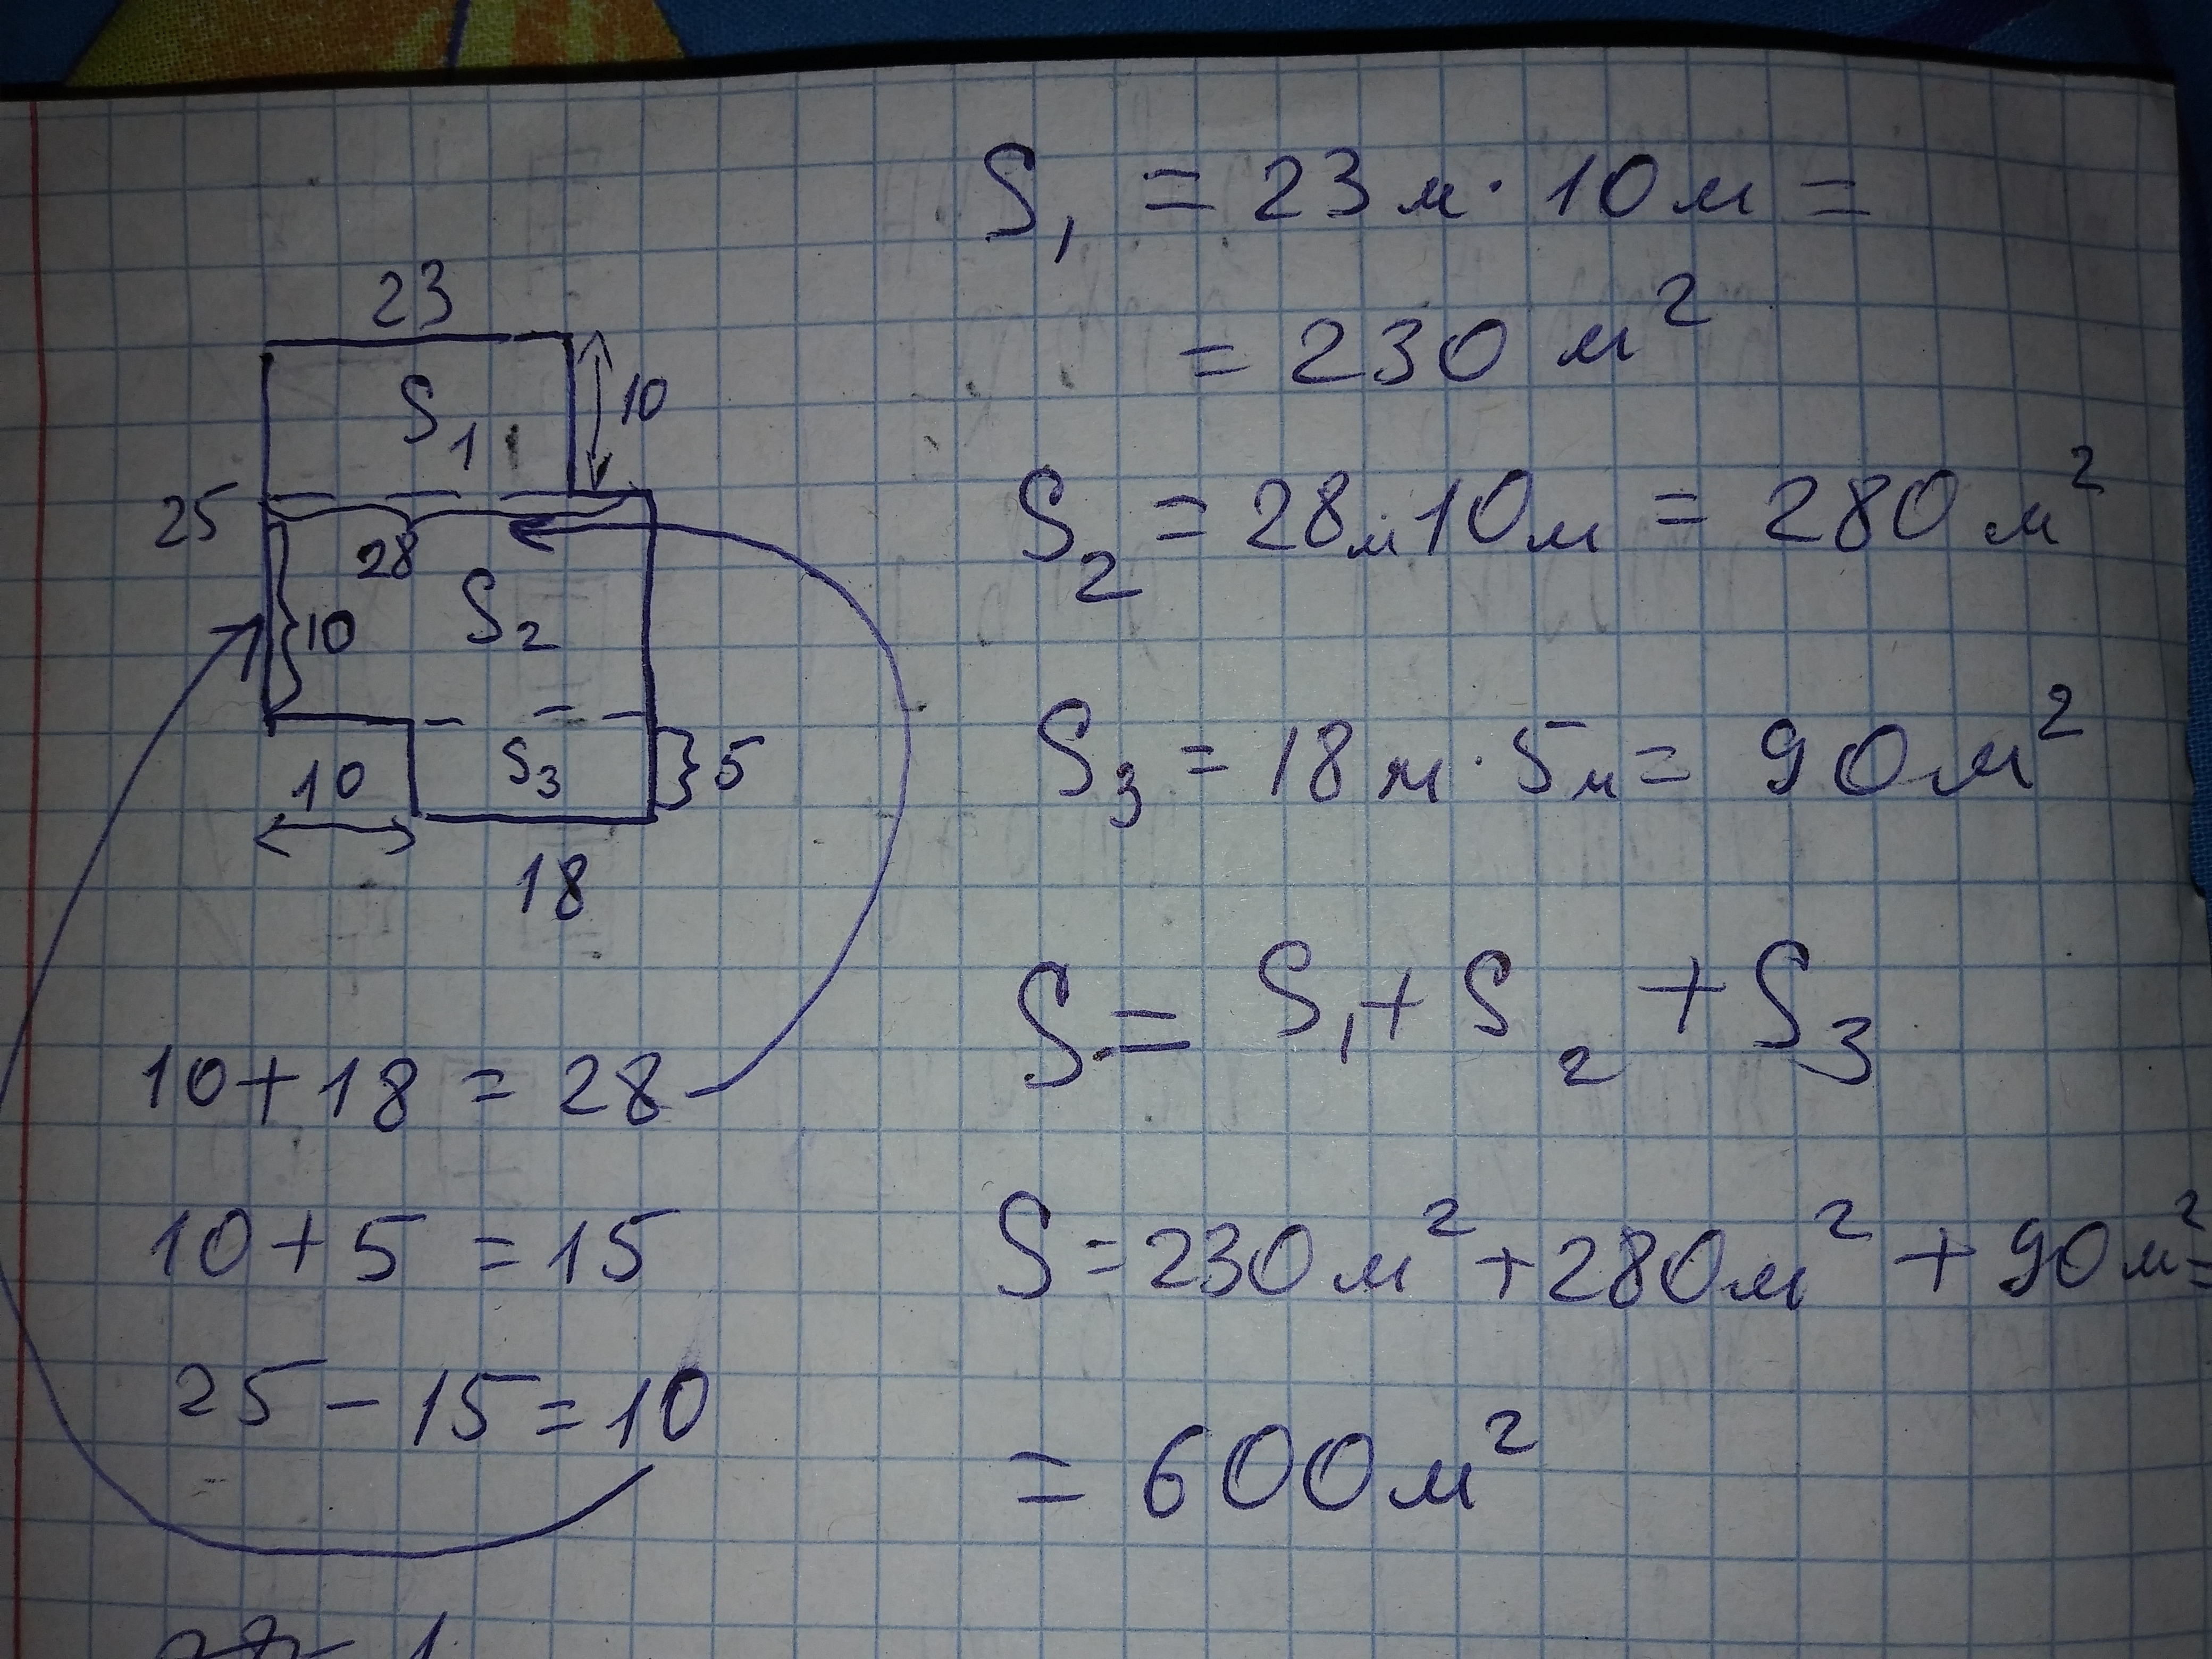 23
S₁
10
25
28
10
S₂
10
S₃
5
18
10+18=28
10+5=15
25-15=10
S₁ = 23м·10м=
= 230 м²
S₂ = 28м·10м = 280 м²
S₃ = 18м·5м = 90м²
S = S₁+S₂+S₃
S=230м²+280м²+90м²=
= 600м²